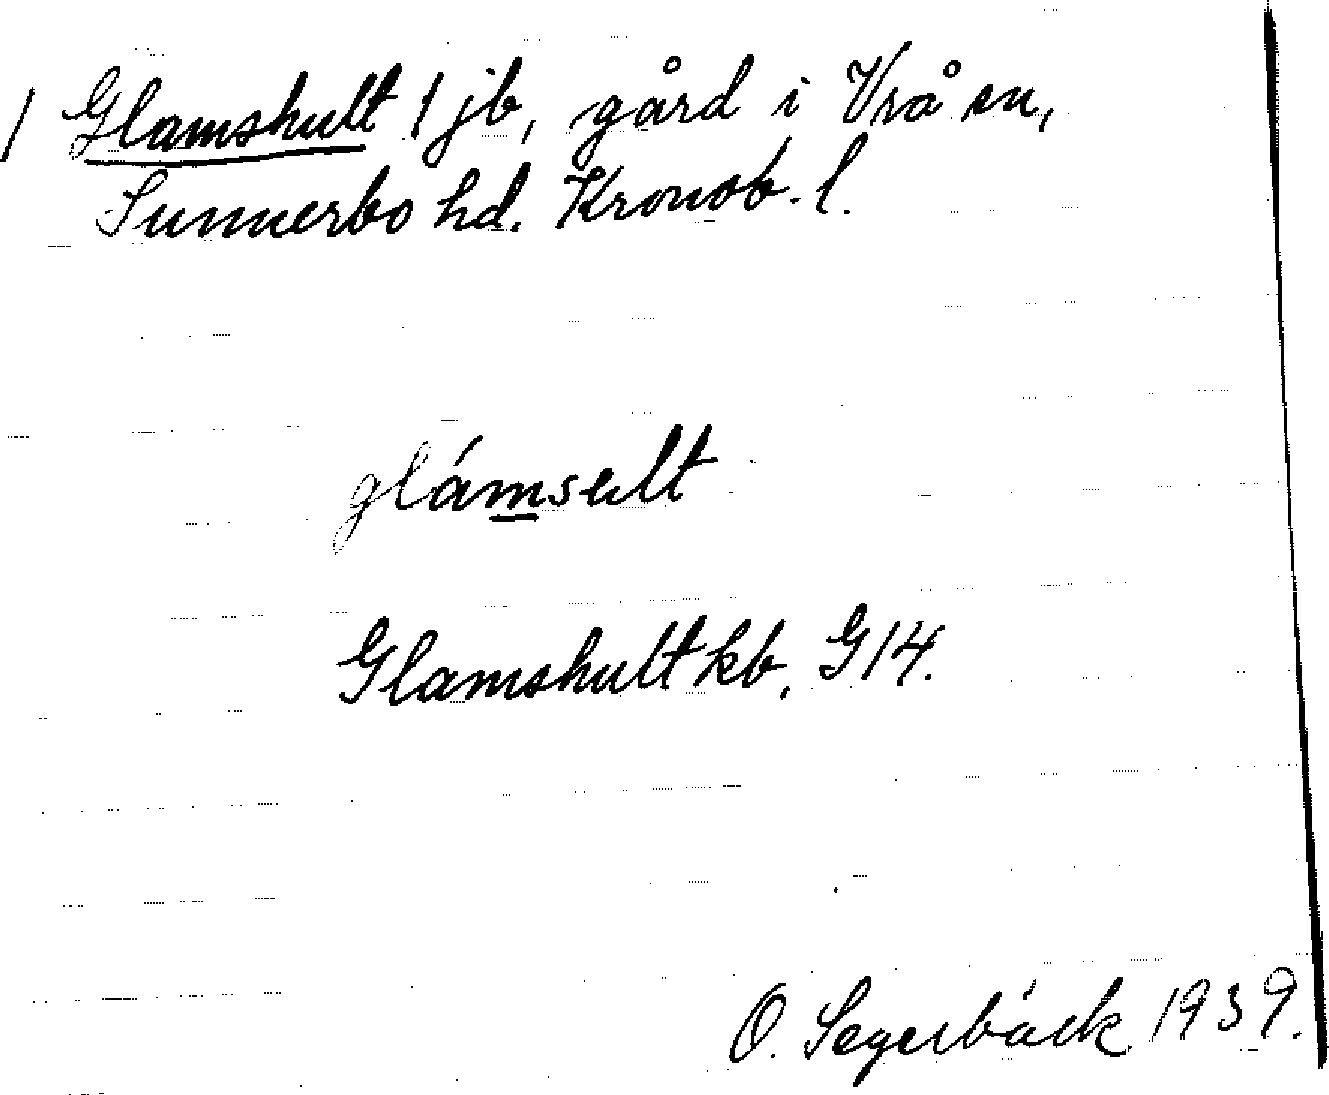 / Glamshult 1 jb, gård i Vrå sn,
Sunnerbo hd. Kronob. l.
glámsult
Glamshult kb. G14.
O. Segerbäck 1939.